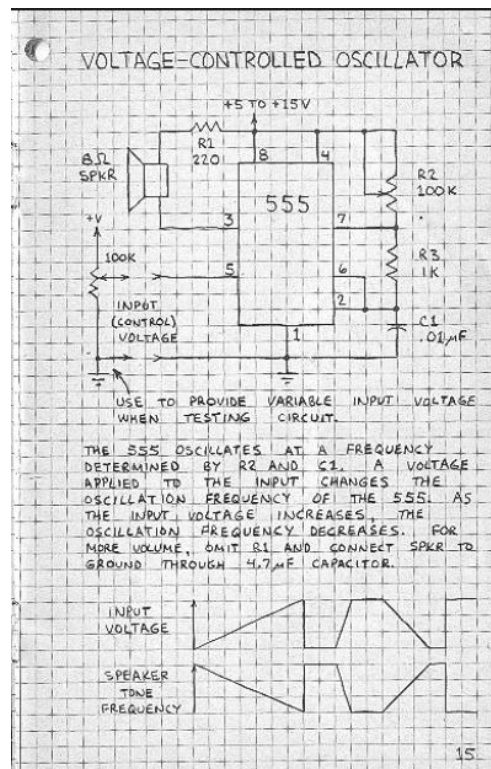 VOLTAGE-CONTROLLED OSCILLATOR
+5 TO +15V
R1
220
8Ω
SPKR
8
4
R2
100K
555
+V
3
7
100K
R3
1K
5
6
2
INPUT
(CONTROL)
VOLTAGE
1
C1
.01µF
USE TO PROVIDE VARIABLE INPUT VOLTAGE
WHEN TESTING CIRCUIT.
THE 555 OSCILLATES AT A FREQUENCY
DETERMINED BY R2 AND C1. A VOLTAGE
APPLIED TO THE INPUT CHANGES THE
OSCILLATION FREQUENCY OF THE 555. AS
THE INPUT VOLTAGE INCREASES, THE
OSCILLATION FREQUENCY DECREASES. FOR
MORE VOLUME, OMIT R1 AND CONNECT SPKR TO
GROUND THROUGH 4.7µF CAPACITOR.
INPUT
VOLTAGE
SPEAKER
TONE
FREQUENCY
15